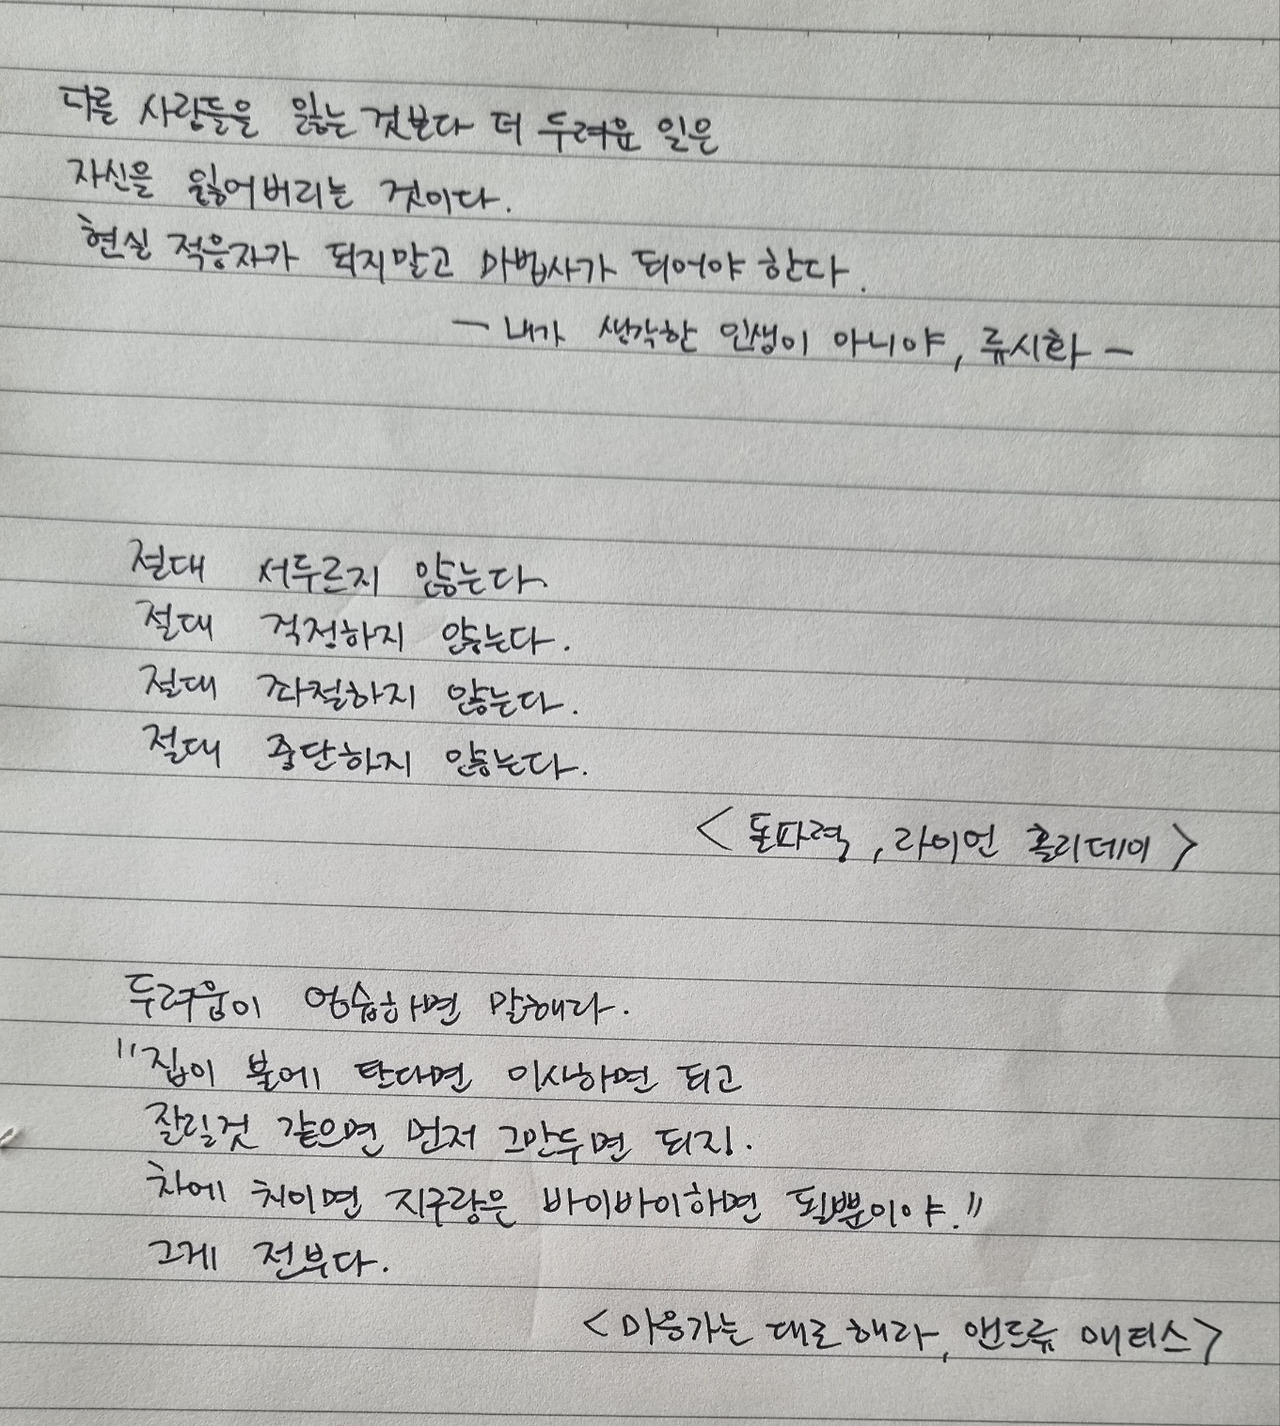 다른 사람들을 잃는 것보다 더 두려운 일은
자신을 잃어버리는 것이다.
현실 적응자가 되지말고 마법사가 되어야 한다.
- 내가 생각한 인생이 아니야, 류시화 -
절대 서두르지 않는다.
절대 걱정하지 않는다.
절대 좌절하지 않는다.
절대 중단하지 않는다.
<돌파력, 라이언 홀리데이>
두려움이 엄습하면 말해라.
"집이 불에 탄다면 이사하면 되고
잘릴것 같으면 먼저 그만두면 되지.
차에 치이면 지구랑은 바이바이하면 될뿐이야."
그게 전부다.
<마음가는 대로 해라, 앤드류 매티스>